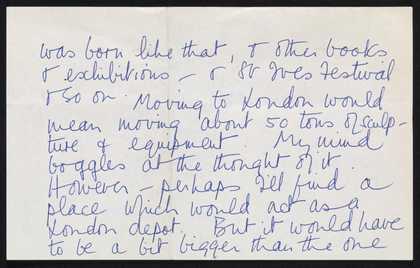 was born like that, & other books
& exhibitions – & St Ives Festival
& so on. Moving to London would
mean moving about 50 tons of sculp-
ture & equipment. My mind
boggles at the thought of it.
However – perhaps I'll find a
place which would act as a
London depot. But it would have
to be a bit bigger than the one